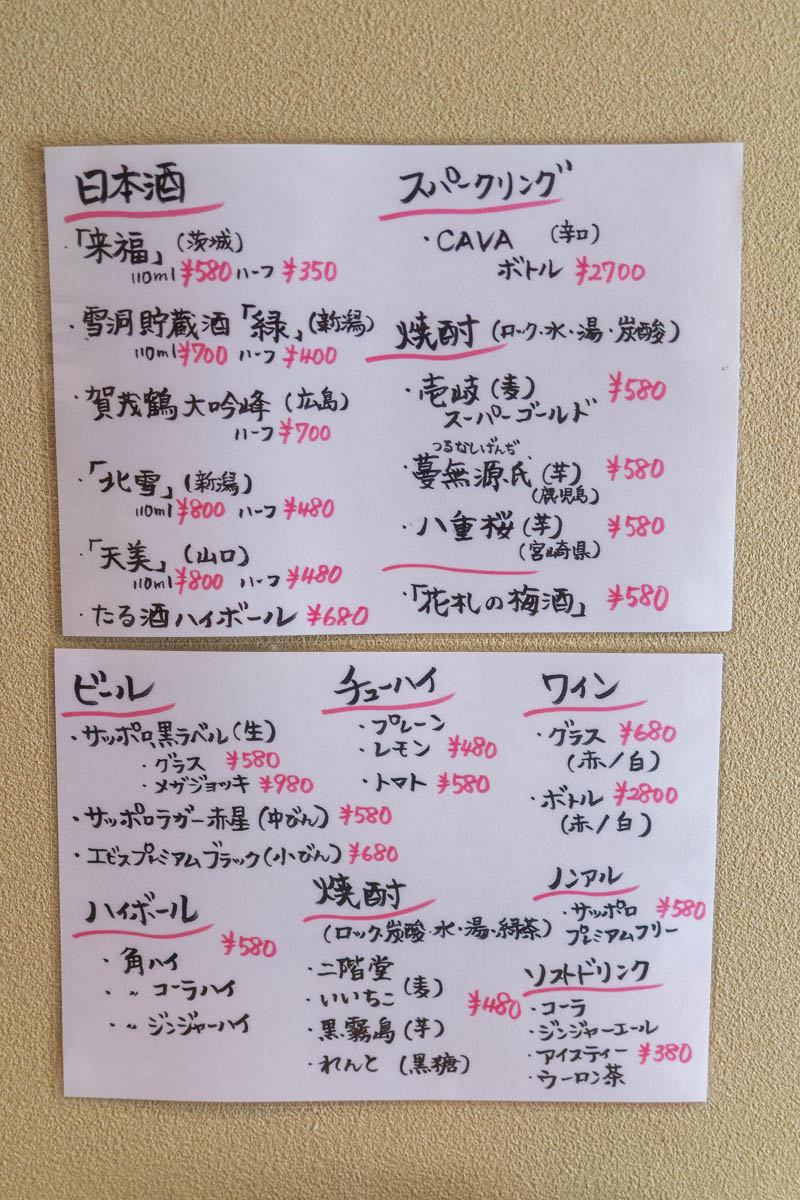 日本酒
・「来福」(茨城)
110ml ¥580 ハーフ ¥350
・雪洞貯蔵酒「緑」(新潟)
110ml ¥700 ハーフ ¥400
・賀茂鶴大吟峰(広島)
ハーフ ¥700
・「北雪」(新潟)
110ml ¥800 ハーフ ¥480
・「天美」(山口)
110ml ¥800 ハーフ ¥480
・たる酒ハイボール ¥680
スパークリング
・CAVA (辛口)
ボトル ¥2700
焼酎(ロック・水・湯・炭酸)
・壱岐(麦) ¥580
スーパーゴールド
つるなしげんぢ
・蔓無源氏(芋) ¥580
(鹿児島)
・八重桜(芋) ¥580
(宮崎県)
・「花札の梅酒」 ¥580
ビール
・サッポロ黒ラベル(生)
・グラス ¥580
・メガジョッキ ¥980
・サッポロラガー赤星(中びん) ¥580
・エビスプレミアムブラック(小びん) ¥680
ハイボール
¥580
・角ハイ
・〃 コーラハイ
・〃 ジンジャーハイ
チューハイ
・プレーン
・レモン ¥480
・トマト ¥580
焼酎
(ロック・炭酸・水・湯・緑茶)
・二階堂
・いいちこ (麦)
¥480
・黒霧島(芋)
・れんと (黒糖)
ワイン
・グラス ¥680
(赤/白)
・ボトル ¥2800
(赤/白)
ノンアル
・サッポロ ¥580
プレミアムフリー
ソストドリンク
・コーラ
・ジンジャーエール
・アイスティー ¥380
・ウーロン茶